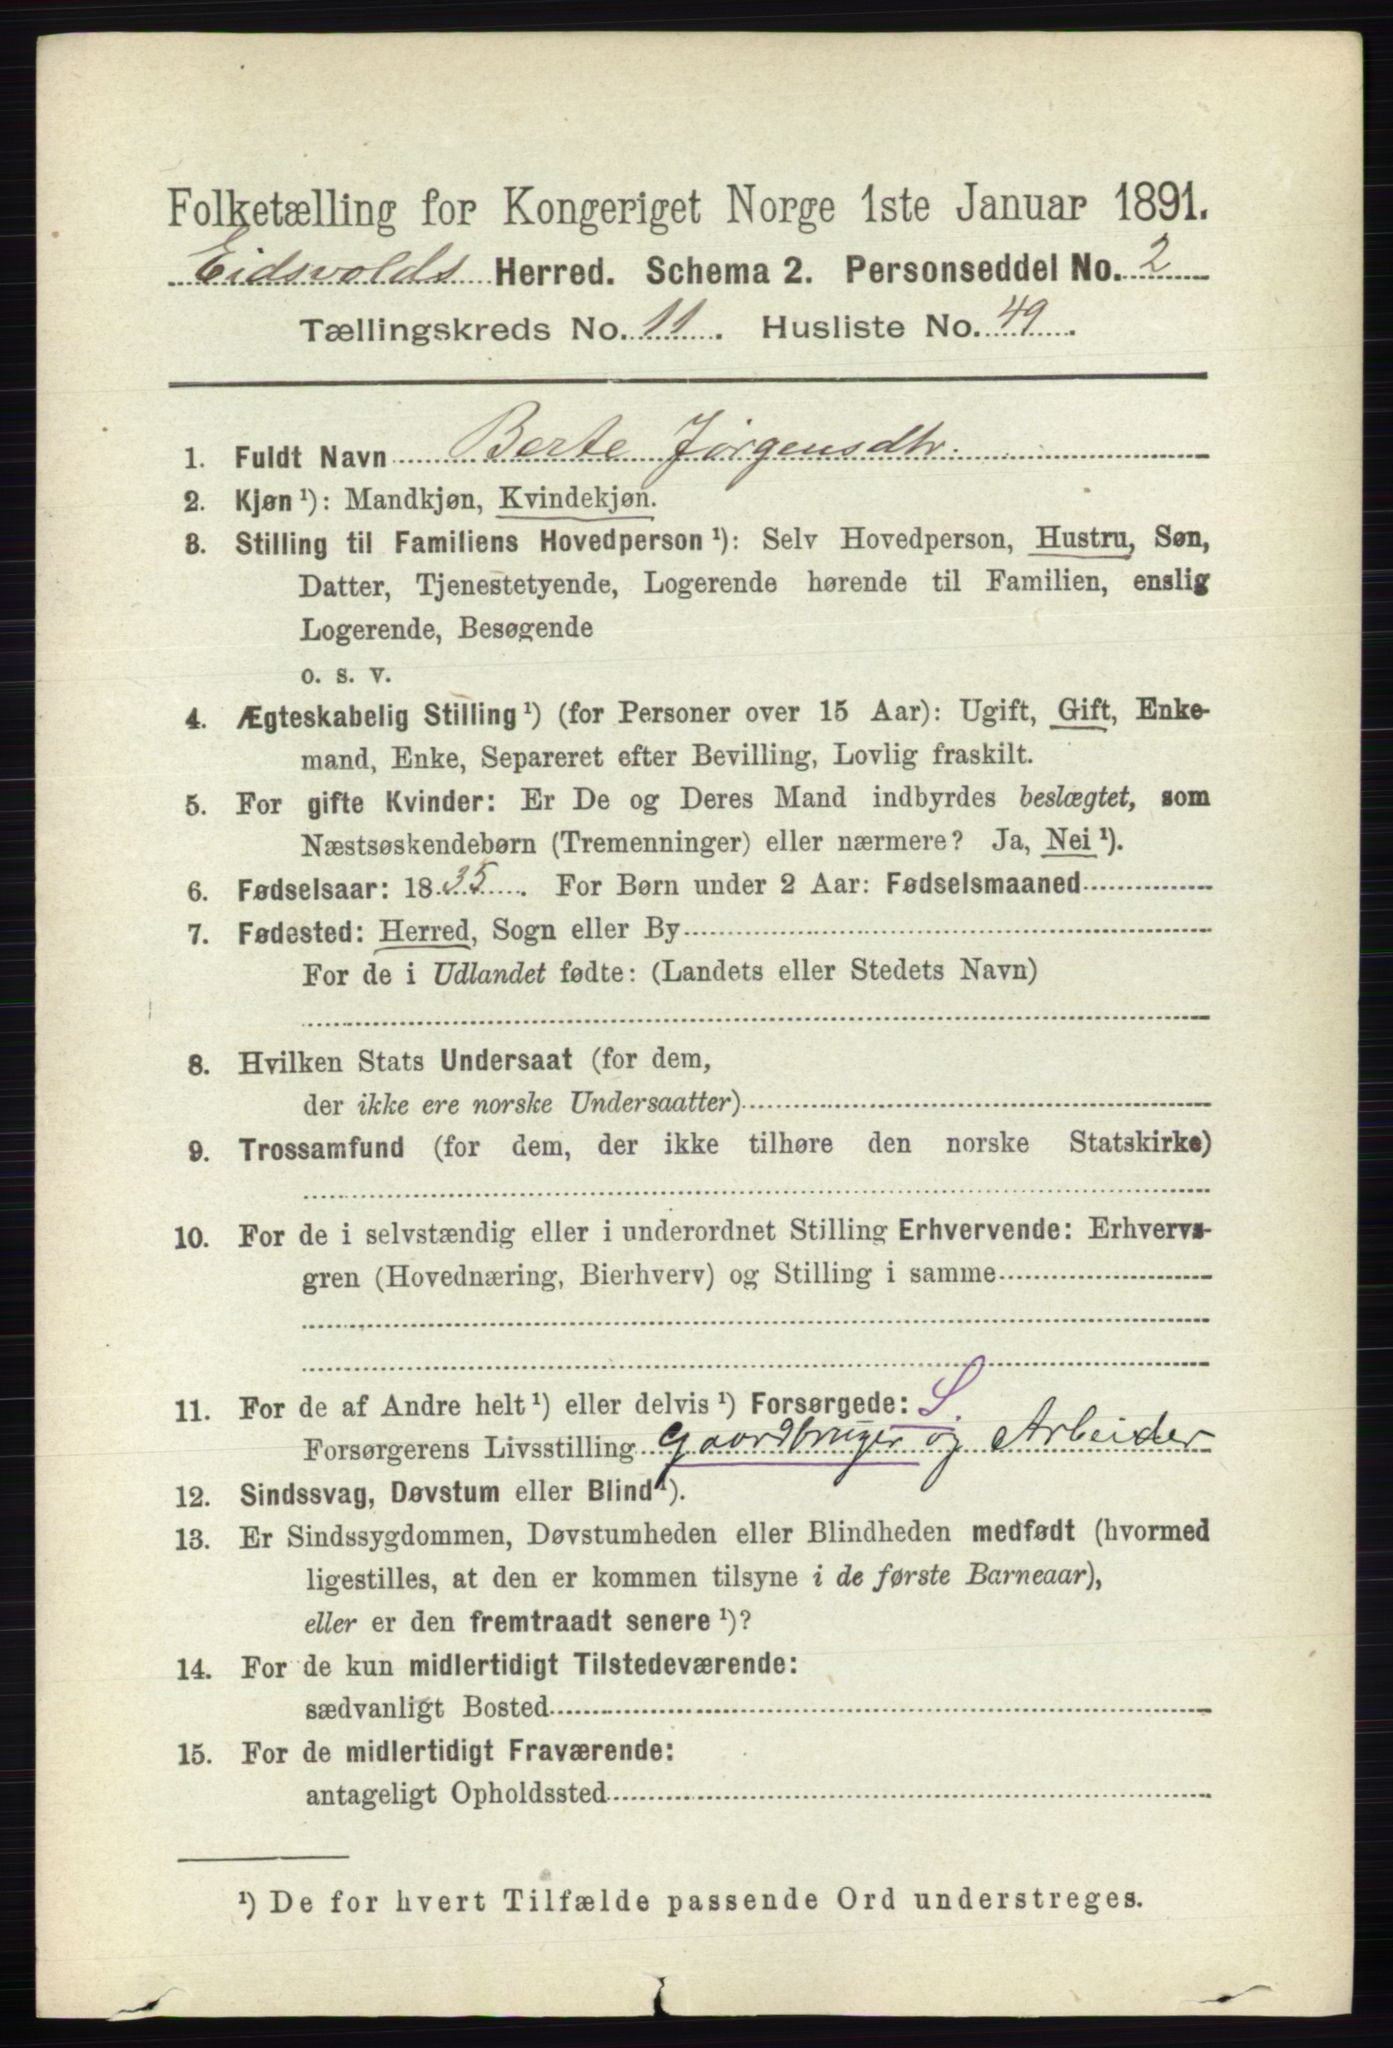 Folketælling for Kongeriget Norge 1ste Januar 1891.
Eidsvolds Herred. Schema 2. Personseddel No. 2
Tællingskreds No. 11. Husliste No. 49.
1. Fuldt Navn Berte Jørgensdtr.
2. Kjøn ¹): Mandkjøn, Kvindekjøn.
3. Stilling til Familiens Hovedperson ¹): Selv Hovedperson, Hustru, Søn,
Datter, Tjenestetyende, Logerende hørende til Familien, enslig
Logerende, Besøgende
o. s. v.
4. Ægteskabelig Stilling ¹) (for Personer over 15 Aar): Ugift, Gift, Enke-
mand, Enke, Separeret efter Bevilling, Lovlig fraskilt.
5. For gifte Kvinder: Er De og Deres Mand indbyrdes beslægtet, som
Næstsøskendebørn (Tremenninger) eller nærmere? Ja, Nei ¹).
6. Fødselsaar: 1835. For Børn under 2 Aar: Fødselsmaaned
7. Fødested: Herred, Sogn eller By
For de i Udlandet fødte: (Landets eller Stedets Navn)
8. Hvilken Stats Undersaat (for dem,
der ikke ere norske Undersaatter)
9. Trossamfund (for dem, der ikke tilhøre den norske Statskirke)
10. For de i selvstændig eller i underordnet Stilling Erhvervende: Erhvervs-
gren (Hovednæring, Bierhverv) og Stilling i samme
11. For de af Andre helt ¹) eller delvis ¹) Forsørgede: S.
Forsørgerens Livsstilling Gaardbruger og Arbeider
12. Sindssvag, Døvstum eller Blind ¹).
13. Er Sindssygdommen, Døvstumheden eller Blindheden medfødt (hvormed
ligestilles, at den er kommen tilsyne i de første Barneaar),
eller er den fremtraadt senere ¹)?
14. For de kun midlertidigt Tilstedeværende:
sædvanligt Bosted
15. For de midlertidigt Fraværende:
antageligt Opholdssted
¹) De for hvert Tilfælde passende Ord understreges.